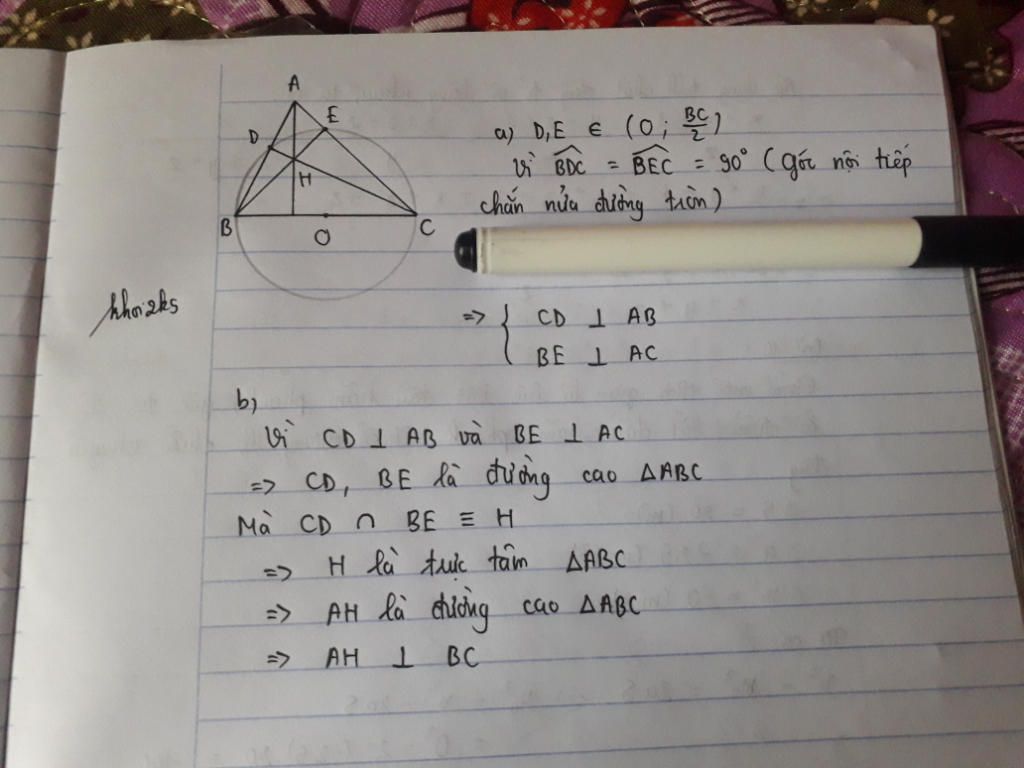 A
E
D
H
B
O
C
a) D, E ∈ (O; BC/2)
Vì \widehat{BDC} = \widehat{BEC} = 90° (góc nội tiếp
chắn nửa đường tròn)
=> { CD ⊥ AB
BE ⊥ AC
khoi2k5
b)
Vì CD ⊥ AB và BE ⊥ AC
=> CD, BE là đường cao ΔABC
Mà CD ∩ BE ≡ H
=> H là trực tâm ΔABC
=> AH là đường cao ΔABC
=> AH ⊥ BC